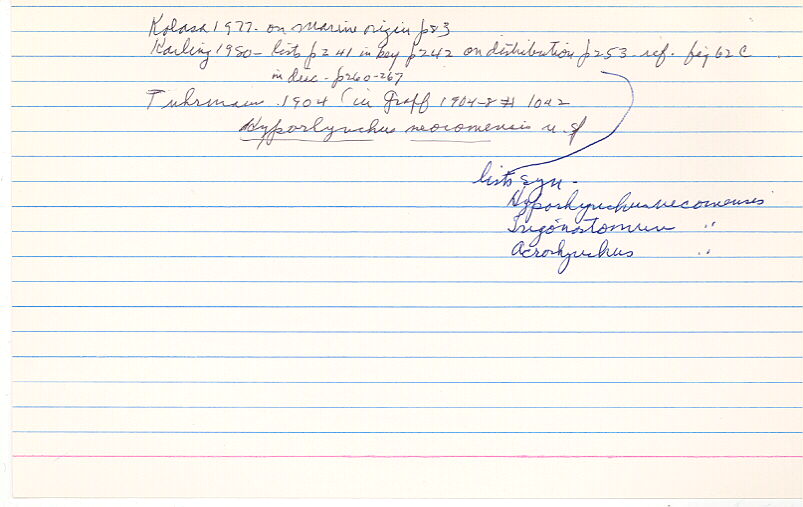 Kolasa 1977 - on marine origin p83
Karling 1980 - lists p241 in key p242 on distribution p253 - ref. fig 62 C
in desc - p260-267
Fuhrmann 1904 (in Graff 1904-8 # 1042
Hyporhynchus neocomensis n. sf
lists syn -
Hyporhynchus neocomensis
Trigonostomum "
Acrorhynchus "